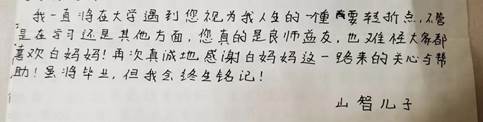 我一直将在大学遇到您视为我人生的一重要转折点,不管
是在学习还是其他方面,您真的是良师益友,也难怪大家都
喜欢白妈妈!再次真诚地感谢白妈妈这一路来的关心与帮
助!虽将毕业,但我会终生铭记!
山智儿子